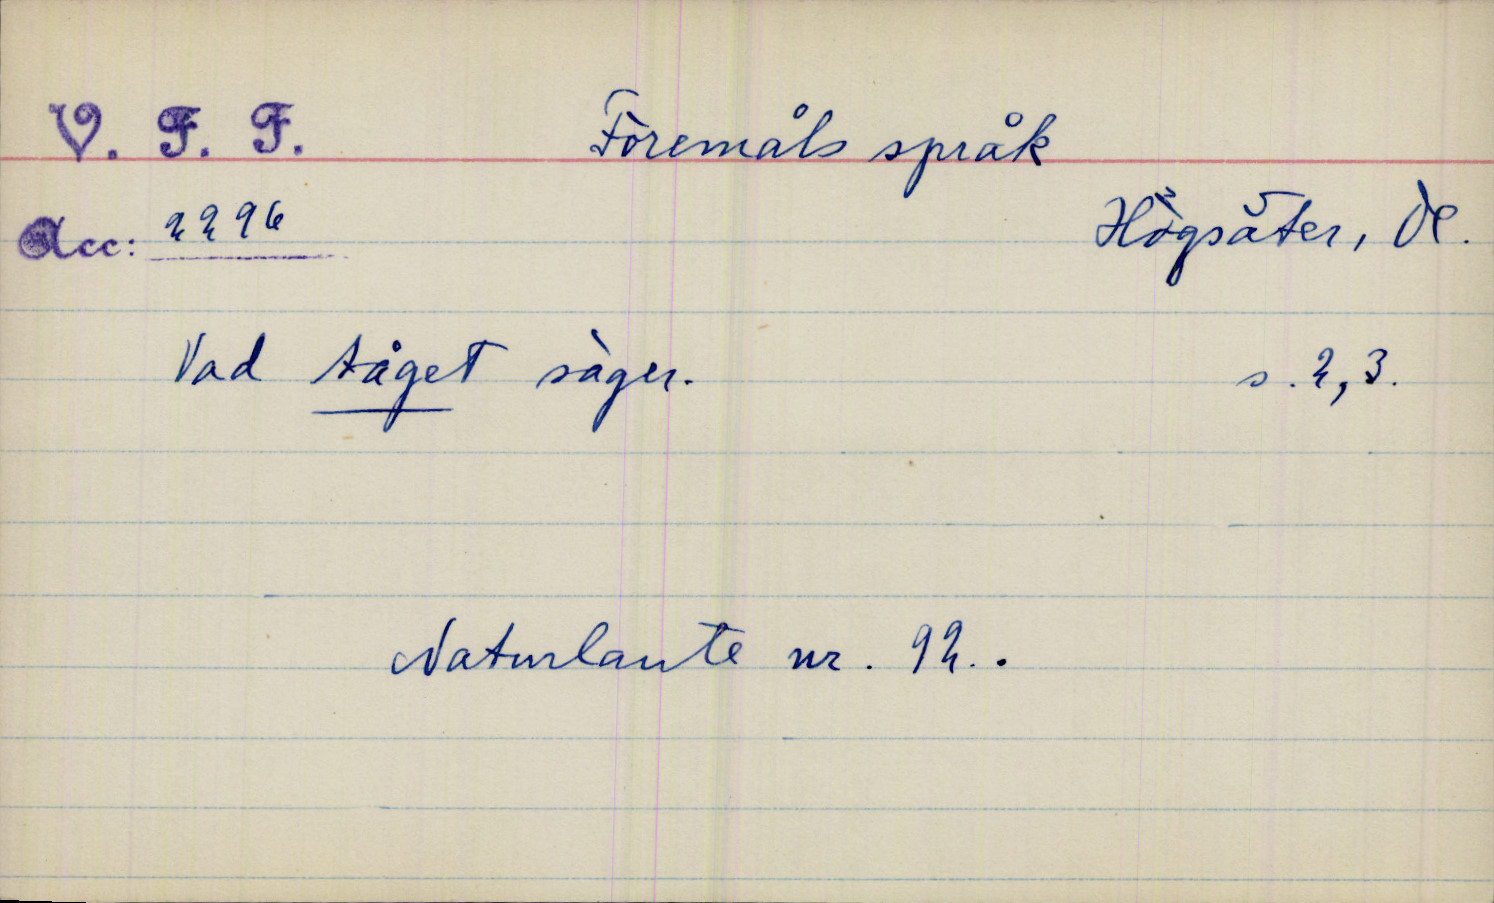 V. F. F. Föremåls språk
Acc: 2296 Högsäter, Dl.
Vad tåget säger. s. 2, 3.
Naturlaute nr. 92.